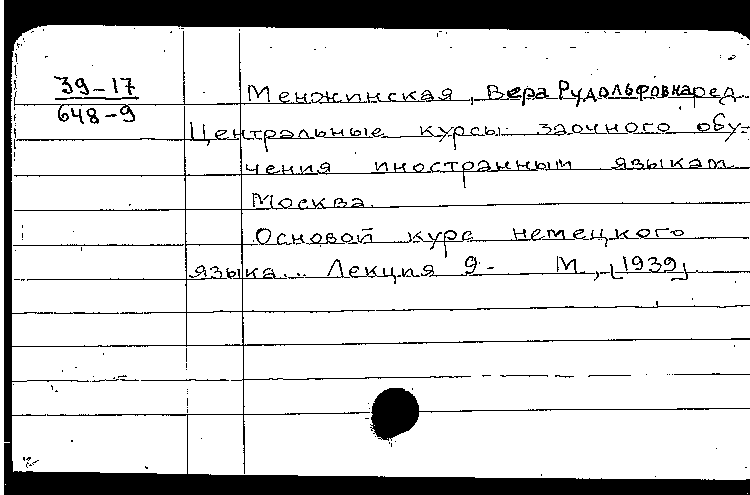 39-17
648-9
Менжинская, Вера Рудольфовна ред.
Центральные курсы заочного обу-
чения иностранным языкам
Москва.
Основой курс немецкого
языка... Лекция 9- М., [1939]